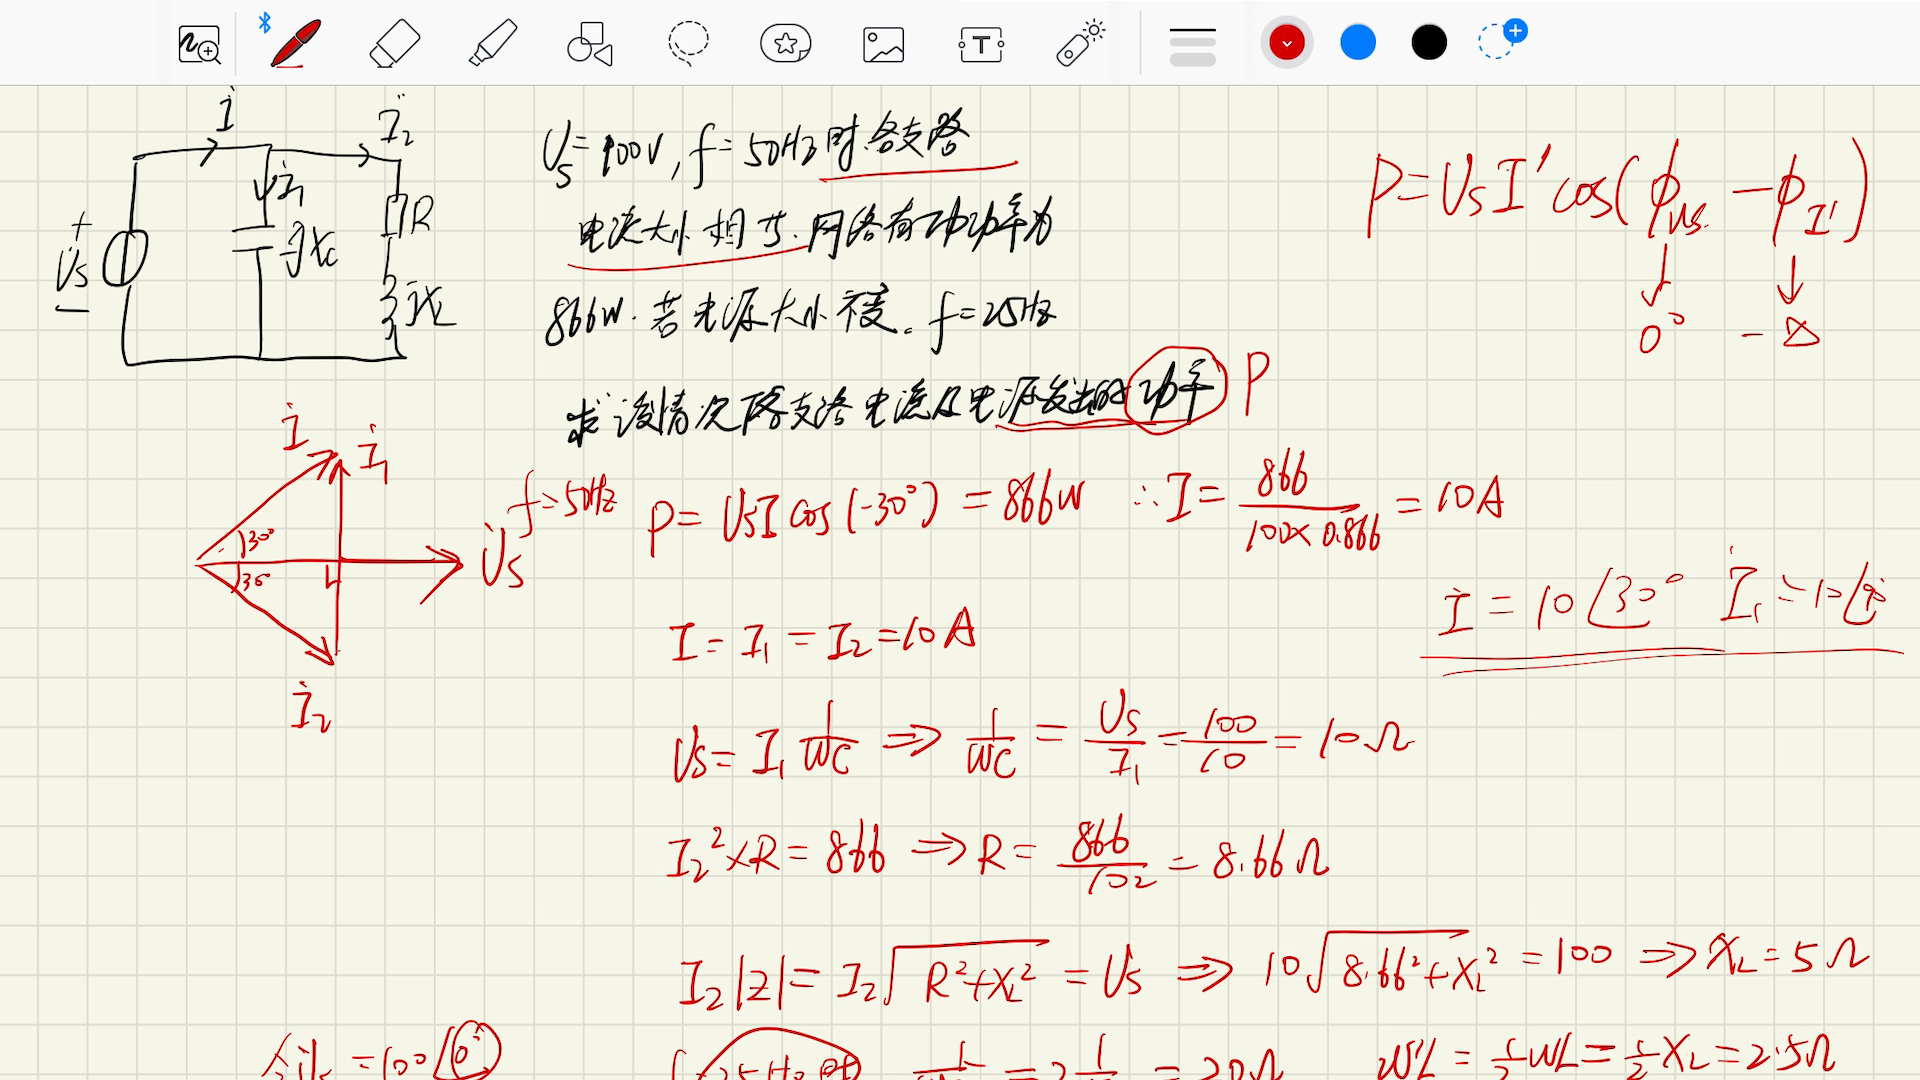 İ
İ₂
İ₁
R
jXc
jXL
+
U̇s
−
Us=100V, f=50Hz时.各支路
电流大小相等.网络有功功率为
866W.若电源大小不变。f=25Hz
求该情况下各支路电流及电源发出的功率 P
P=UsI'cos(ϕus−ϕI')
0° −
İ
İ₁
30°
30°
U̇s
İ₂
f=50Hz
P= UsI cos(-30°) = 866W ∴I= 866/(100×0.866) = 10A
İ = 10∠30° İ₁=10∠90°
I = I₁ = I₂ =10A
Us= I₁ 1/WC ⇒ 1/WC = Us/I₁ = 100/10 = 10Ω
I₂²×R= 866 ⇒ R= 866/10² = 8.66Ω
I₂|Z|= I₂√(R²+XL²) = Us ⇒ 10√(8.66²+XL²) =100 ⇒ XL=5Ω
=100∠0°
25Hz时 =20Ω W'L = ½WL= ½XL=2.5Ω